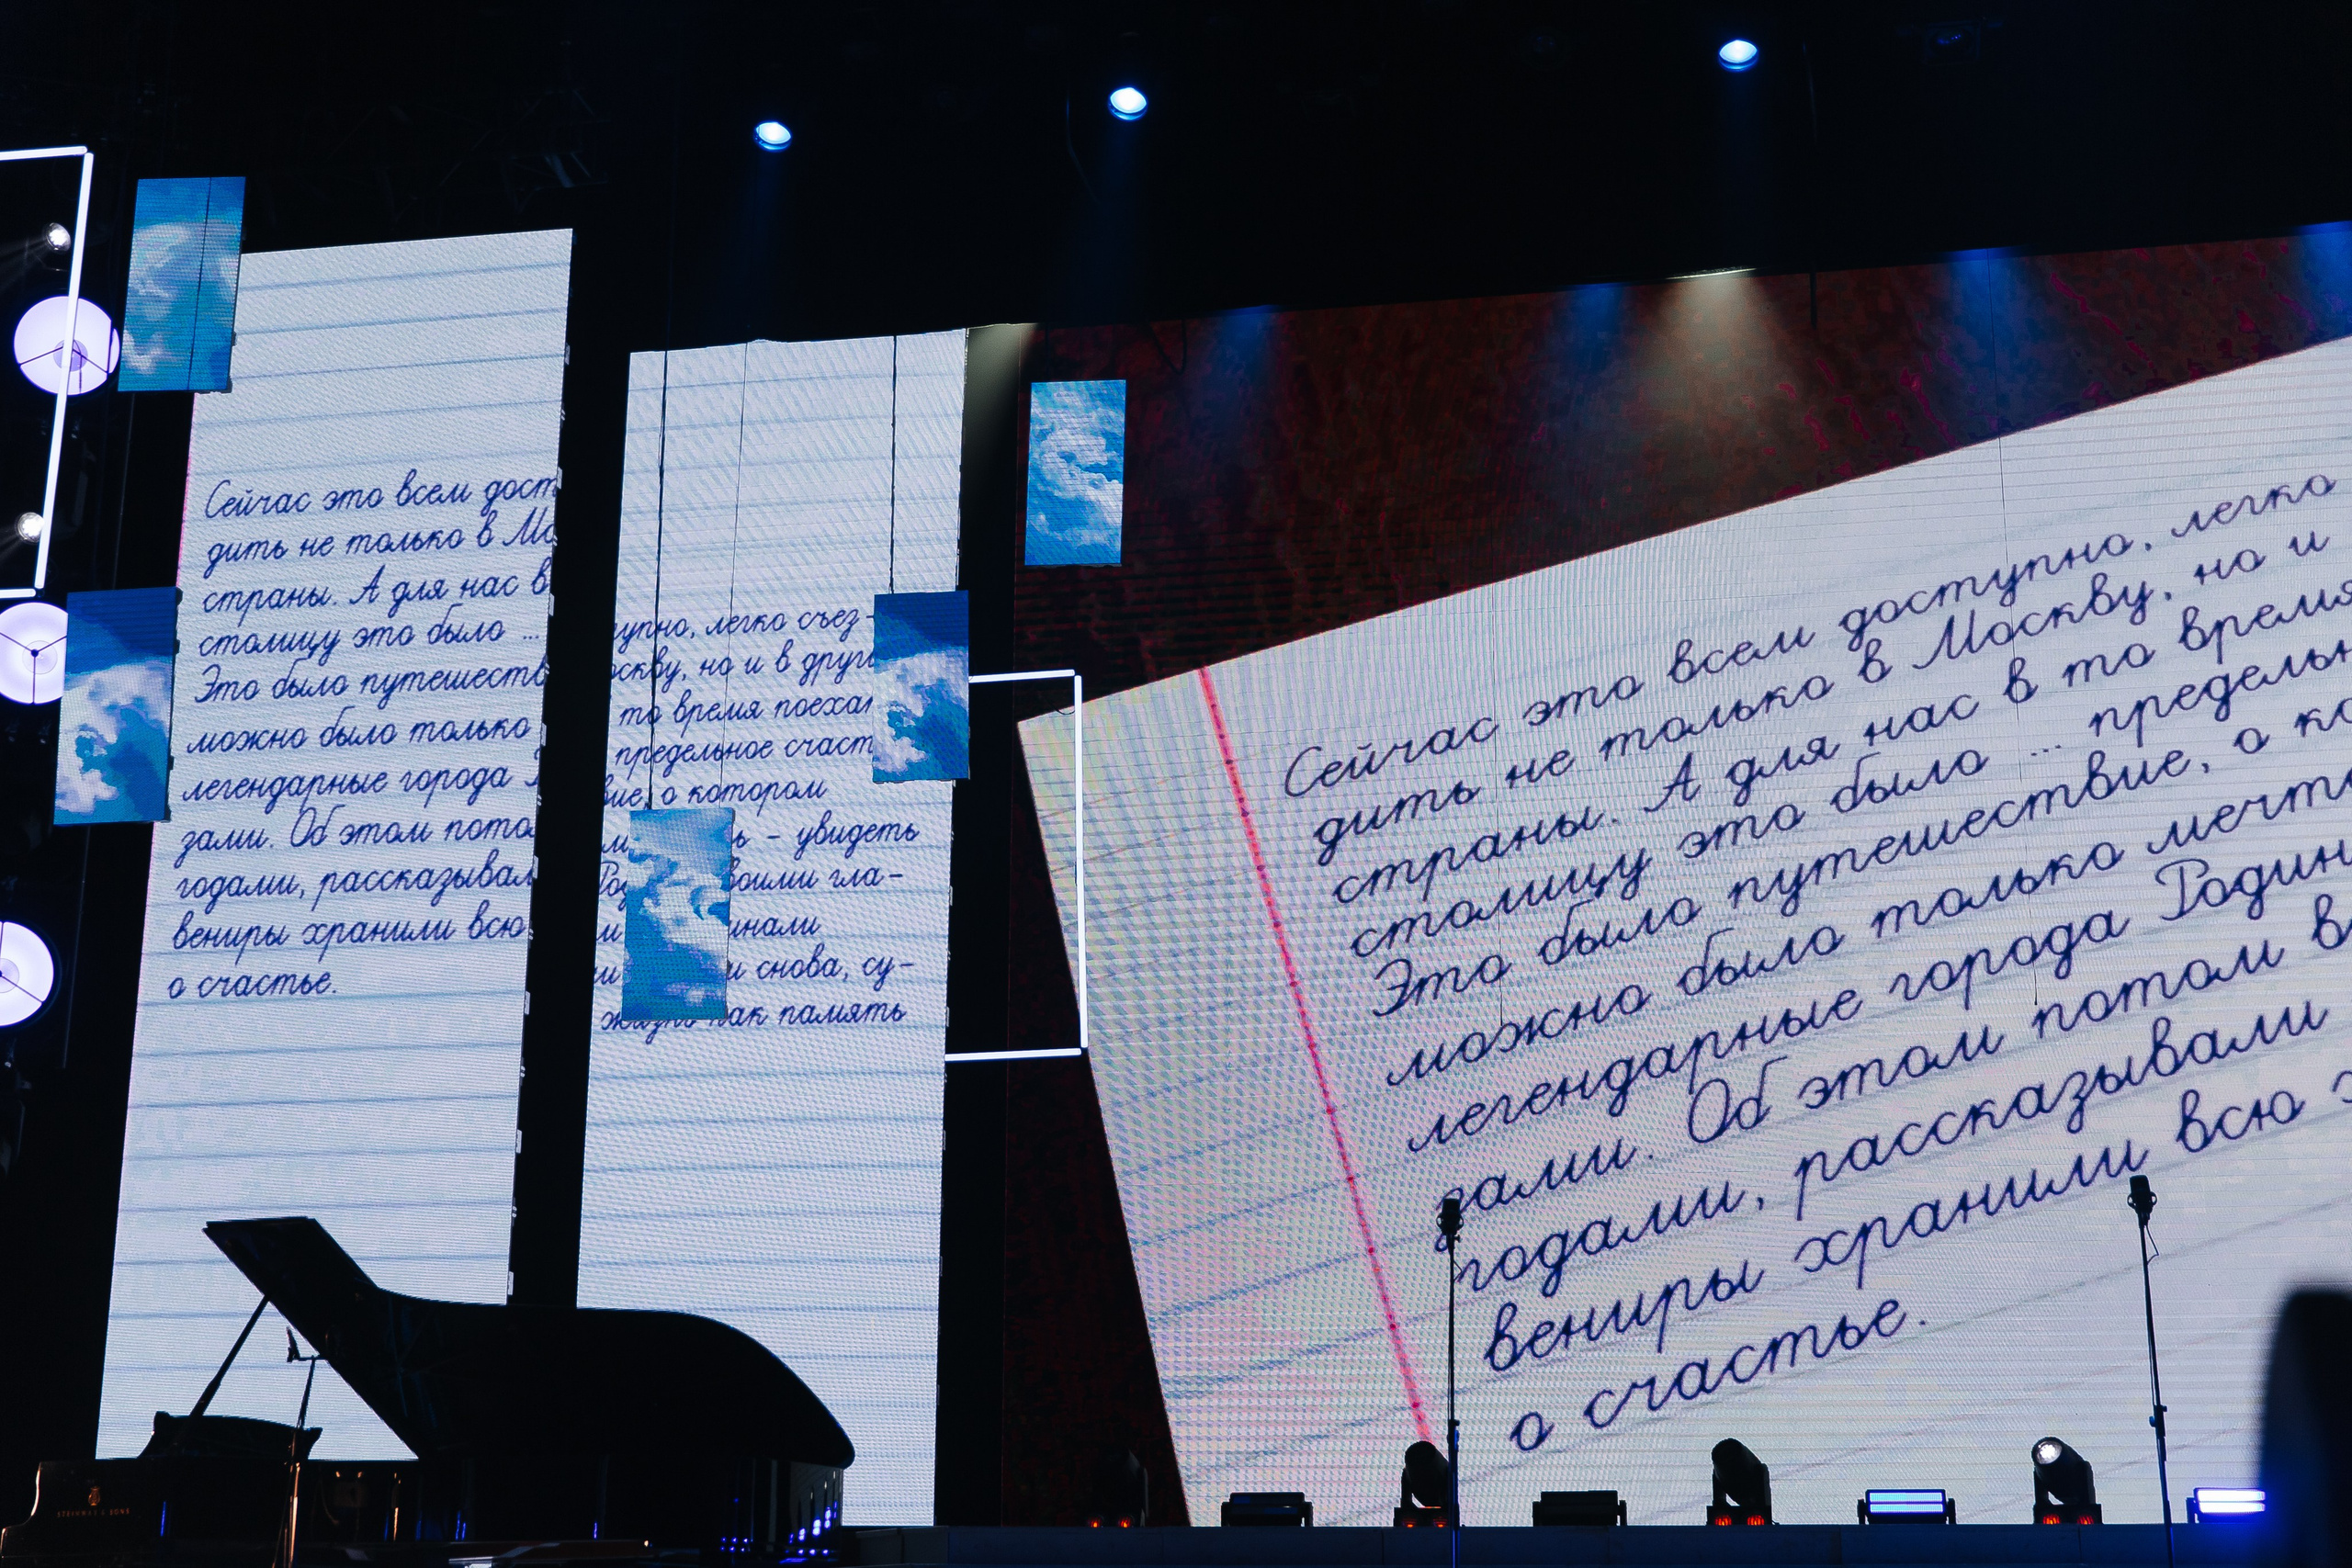 Сейчас это всем дост
дить не только в Мо
страны. А для нас в
столицу это было ...
Это было путешеств
можно было только
легендарные города
зами. Об этом пото
годами, рассказывал
вениры хранили всю
о счастье.
упно, легко съез-
оскву, но и в друг
то время поехат
предельное счаст
вие, о котором
ь - увидеть
воими гла-
инали
и снова, су-
жизнь как память
Сейчас это всем доступно, легко
дить не только в Москву, но и
страны. А для нас в то время
столицу это было ... предельн
Это было путешествие, о ко
можно было только мечта
легендарные города Родин
зами. Об этом потом в
годами, рассказывали
вениры хранили всю
о счастье.
STEINWAY & SONS